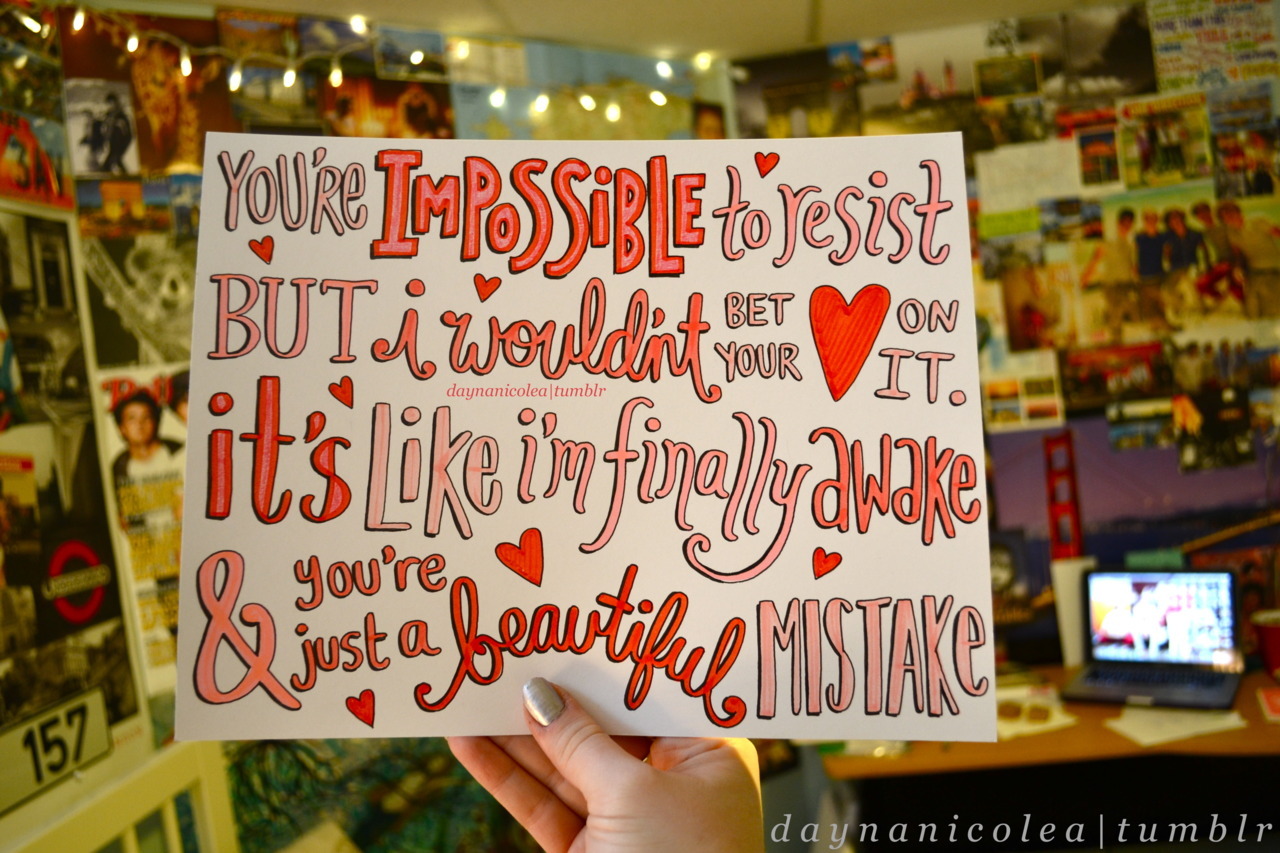 YOU'RE IMPOSSiBLE to resist
BUT i wouldn't BET YOUR ON IT.
daynanicolea|tumblr
it's Like i'm finally awake
& you're just a beautiful MISTAKe
157
daynanicolea|tumblr